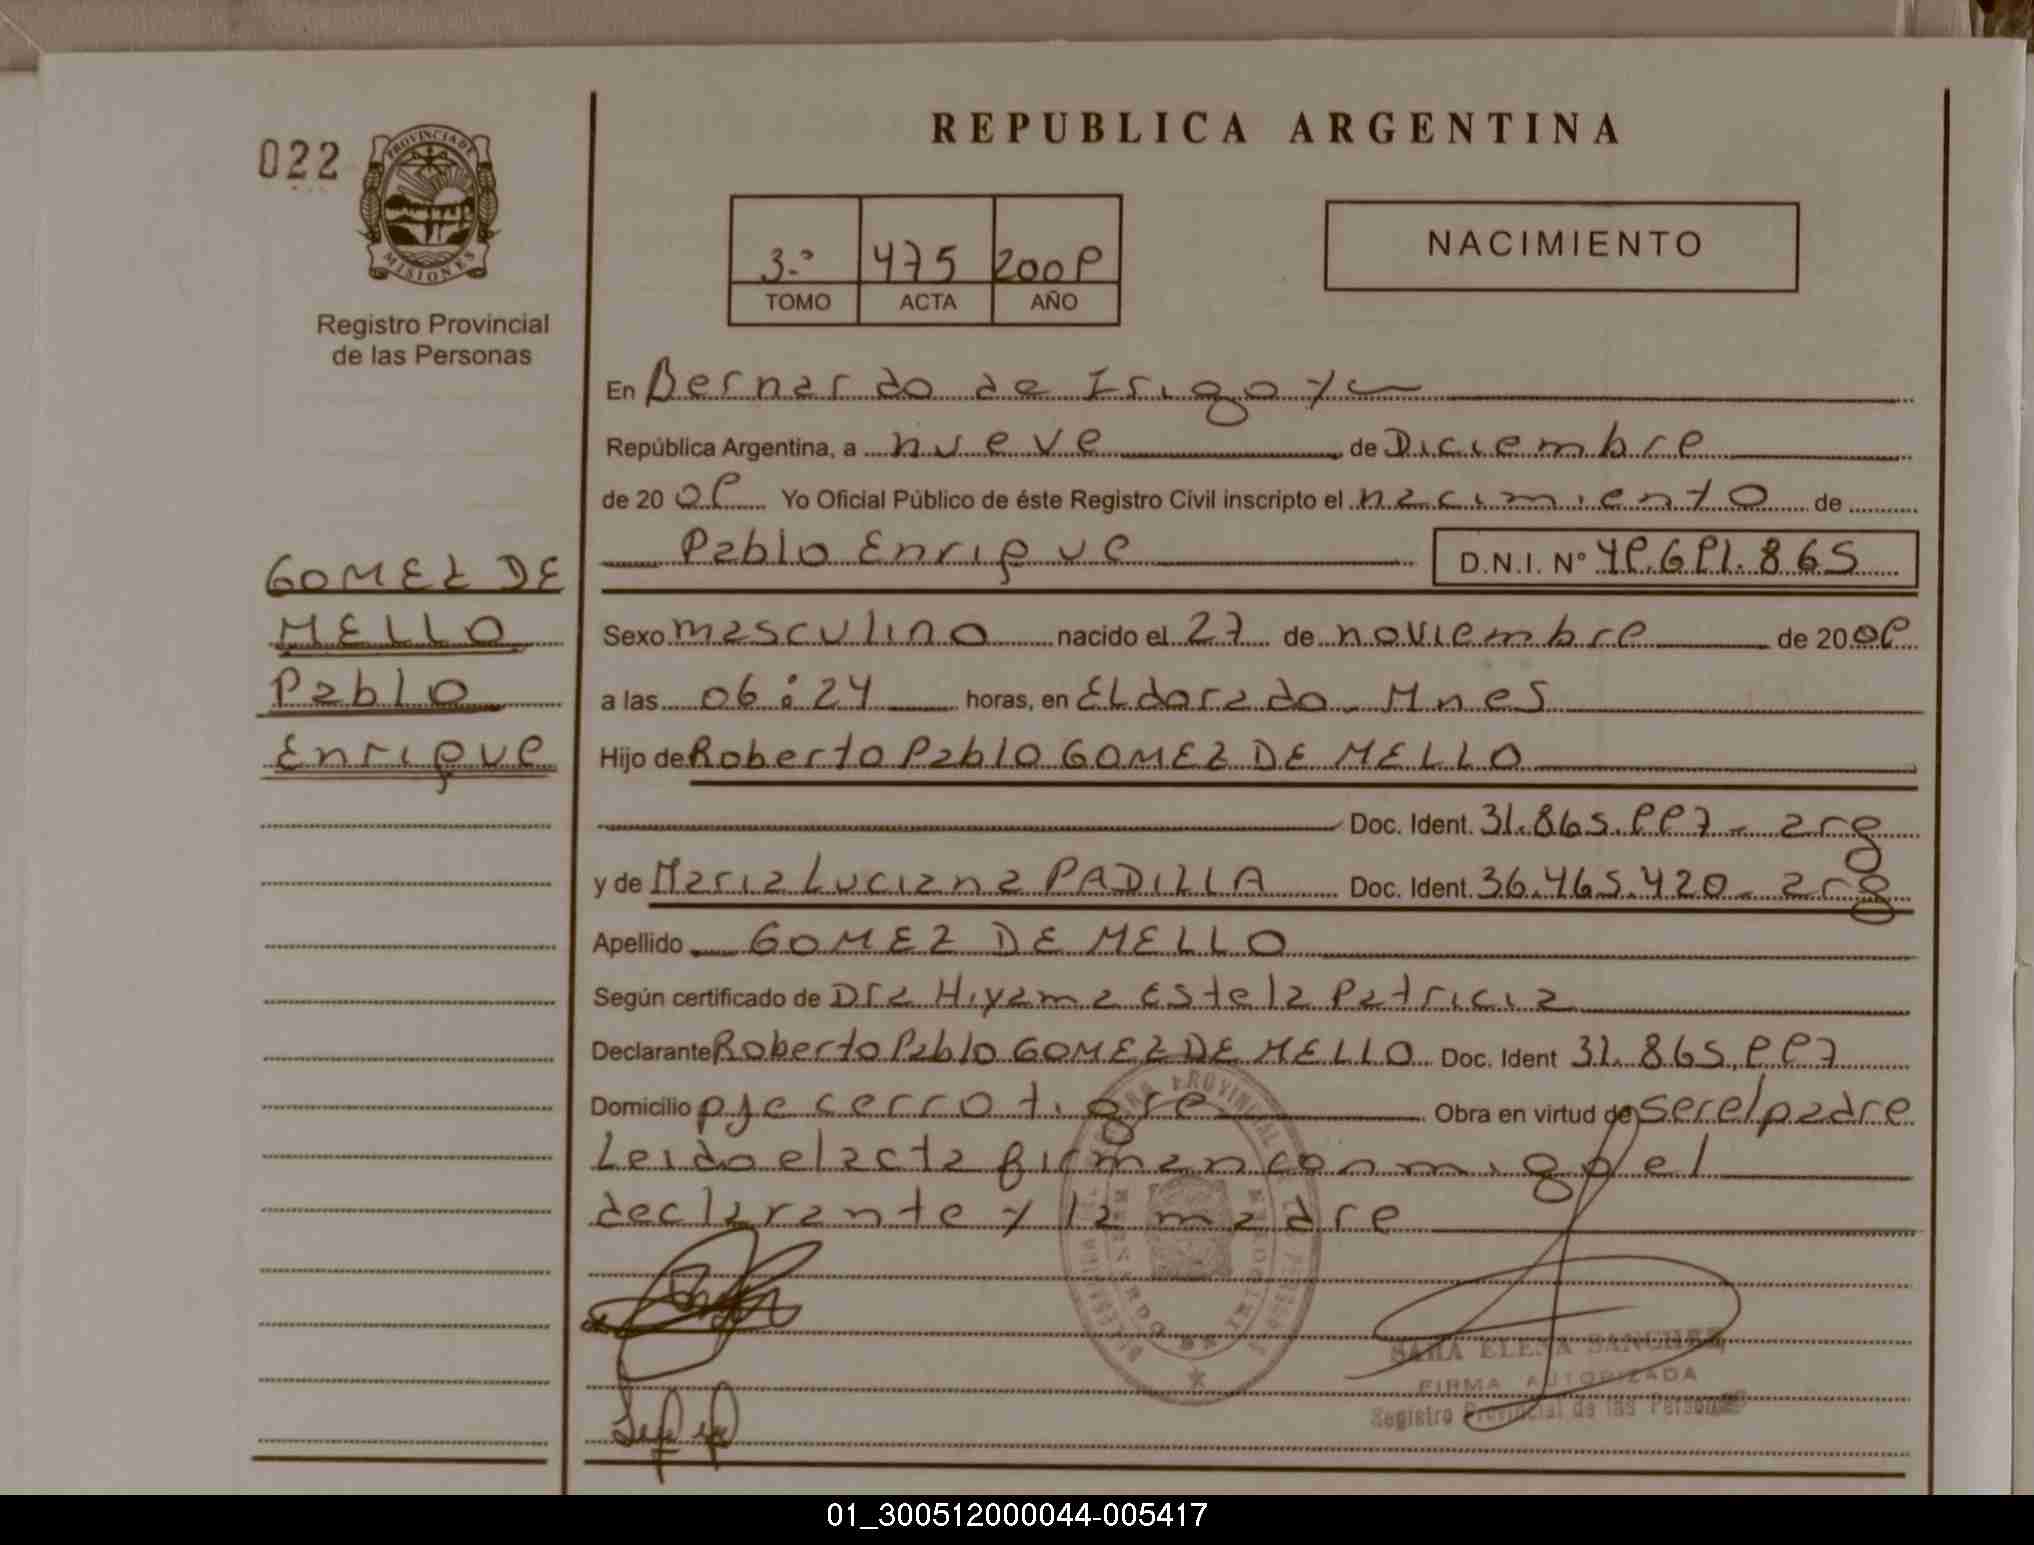 022
PROVINCIA DE
MISIONES
Registro Provincial
de las Personas
REPUBLICA ARGENTINA
3.º 475 2009
TOMO ACTA AÑO
NACIMIENTO
En Bernardo de Irigoyen
República Argentina, a nueve de Diciembre
de 2009 Yo Oficial Público de éste Registro Civil inscripto el nacimiento de
Pablo Enrique D.N.I. Nº 49.691.865
GOMEZ DE
MELLO
Pablo
Enrique
Sexo masculino nacido el 27 de noviembre de 2009
a las 06:24 horas, en Eldorado - Mnes
Hijo de Roberto Pablo GOMEZ DE MELLO
Doc. Ident. 31.865.997 - arg
y de Maria Luciana PADILLA Doc. Ident. 36.465.420 - arg
Apellido GOMEZ DE MELLO
Según certificado de Dra Hiyama Estela Patricia
Declarante Roberto Pablo GOMEZ DE MELLO Doc. Ident 31.865.997
Domicilio pje cerro tigre Obra en virtud de ser el padre
Leido el acta firman conmigo el
declarante y la madre
SARA ELENA SANCHEZ
FIRMA AUTORIZADA
Registro Provincial de las Personas
01_300512000044-005417